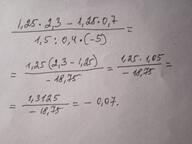 1,25 · 2,3 − 1,25 · 0,7 / 1,5 : 0,4 · (−5) =
= 1,25 (2,3 − 1,25) / −18,75 = 1,25 · 1,05 / −18,75 =
= 1,3125 / −18,75 = − 0,07.